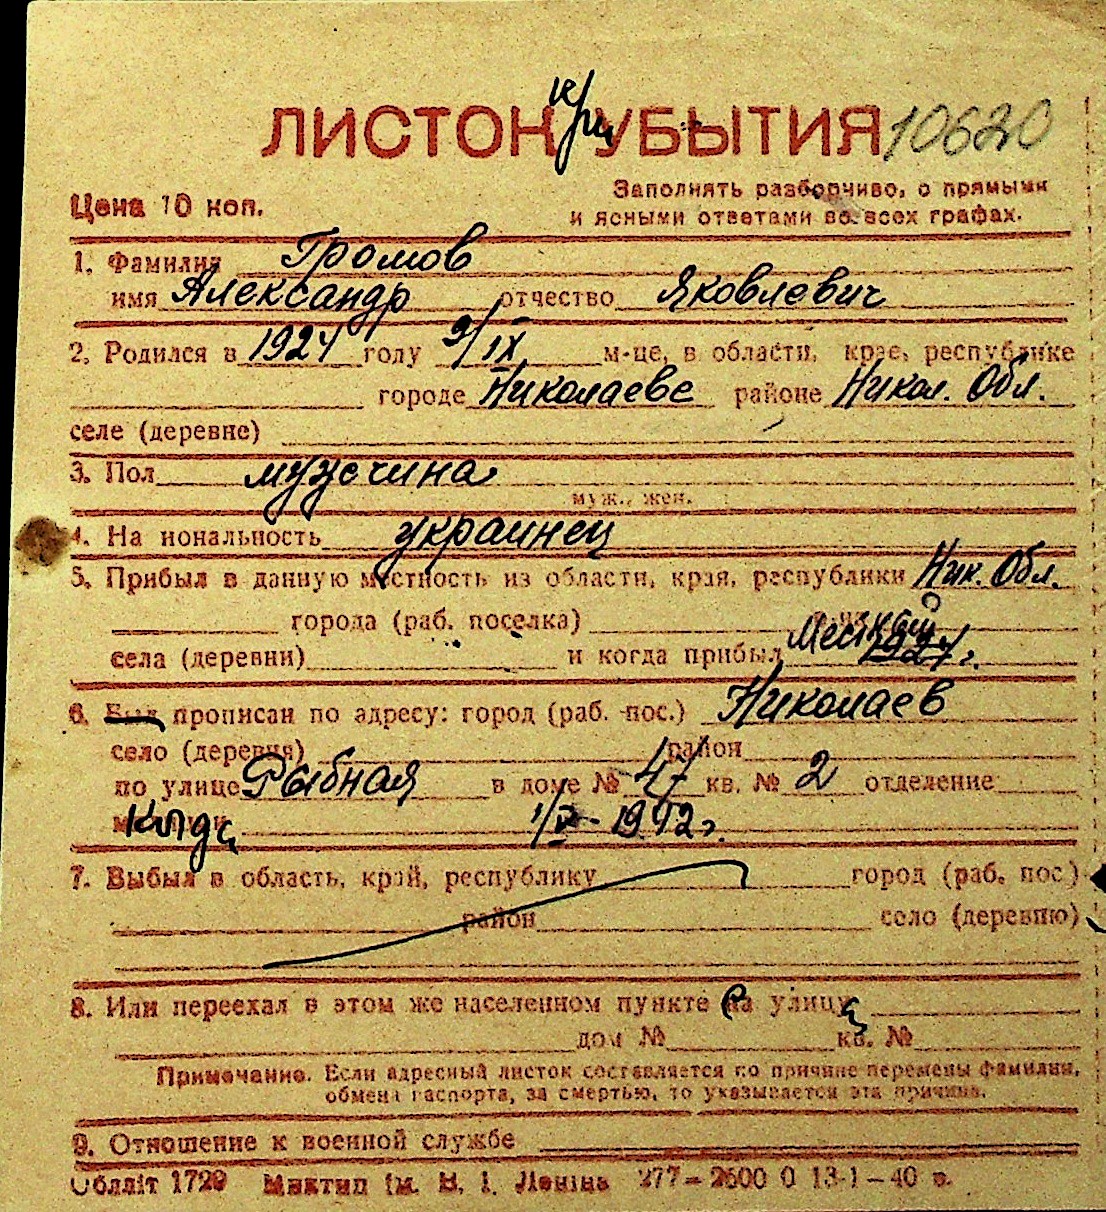 ЛИСТОК при УБЫТИЯ 10620
Цена 10 коп.
Заполнять разборчиво, с прямыми
и ясными ответами во всех графах.
1. Фамилия Громов
имя Александр отчество Яковлевич
2. Родился в 1924 году 9/IX м-це, в области, крае, республике
городе Николаеве районе Никол. Обл.
селе (деревне)
3. Пол мужчина
муж., жен.
4. На иональность украинец
5. Прибыл в данную местность из области, края, республики Ник. Обл.
города (раб. поселка)
села (деревни) и когда прибыл Местный 1924 г.
6. Был прописан по адресу: город (раб. пос.) Николаев
село (деревня) район
по улице Рыбная в доме № 47 кв. № 2 отделение
Когда 1/V - 1942 г.
7. Выбыл в область, край, республику город (раб. пос.)
район село (деревню)
8. Или переехал в этом же населенном пункте с улицы
дом № кв. №
Примечание. Если адресный листок составляется по причине перемены фамилии,
обмена паспорта, за смертью, то указывается эта причина.
9. Отношение к военной службе
Обллiт 1729 Миктип iм. В. I. Ленiна 277—2600 0 13-1—40 в.